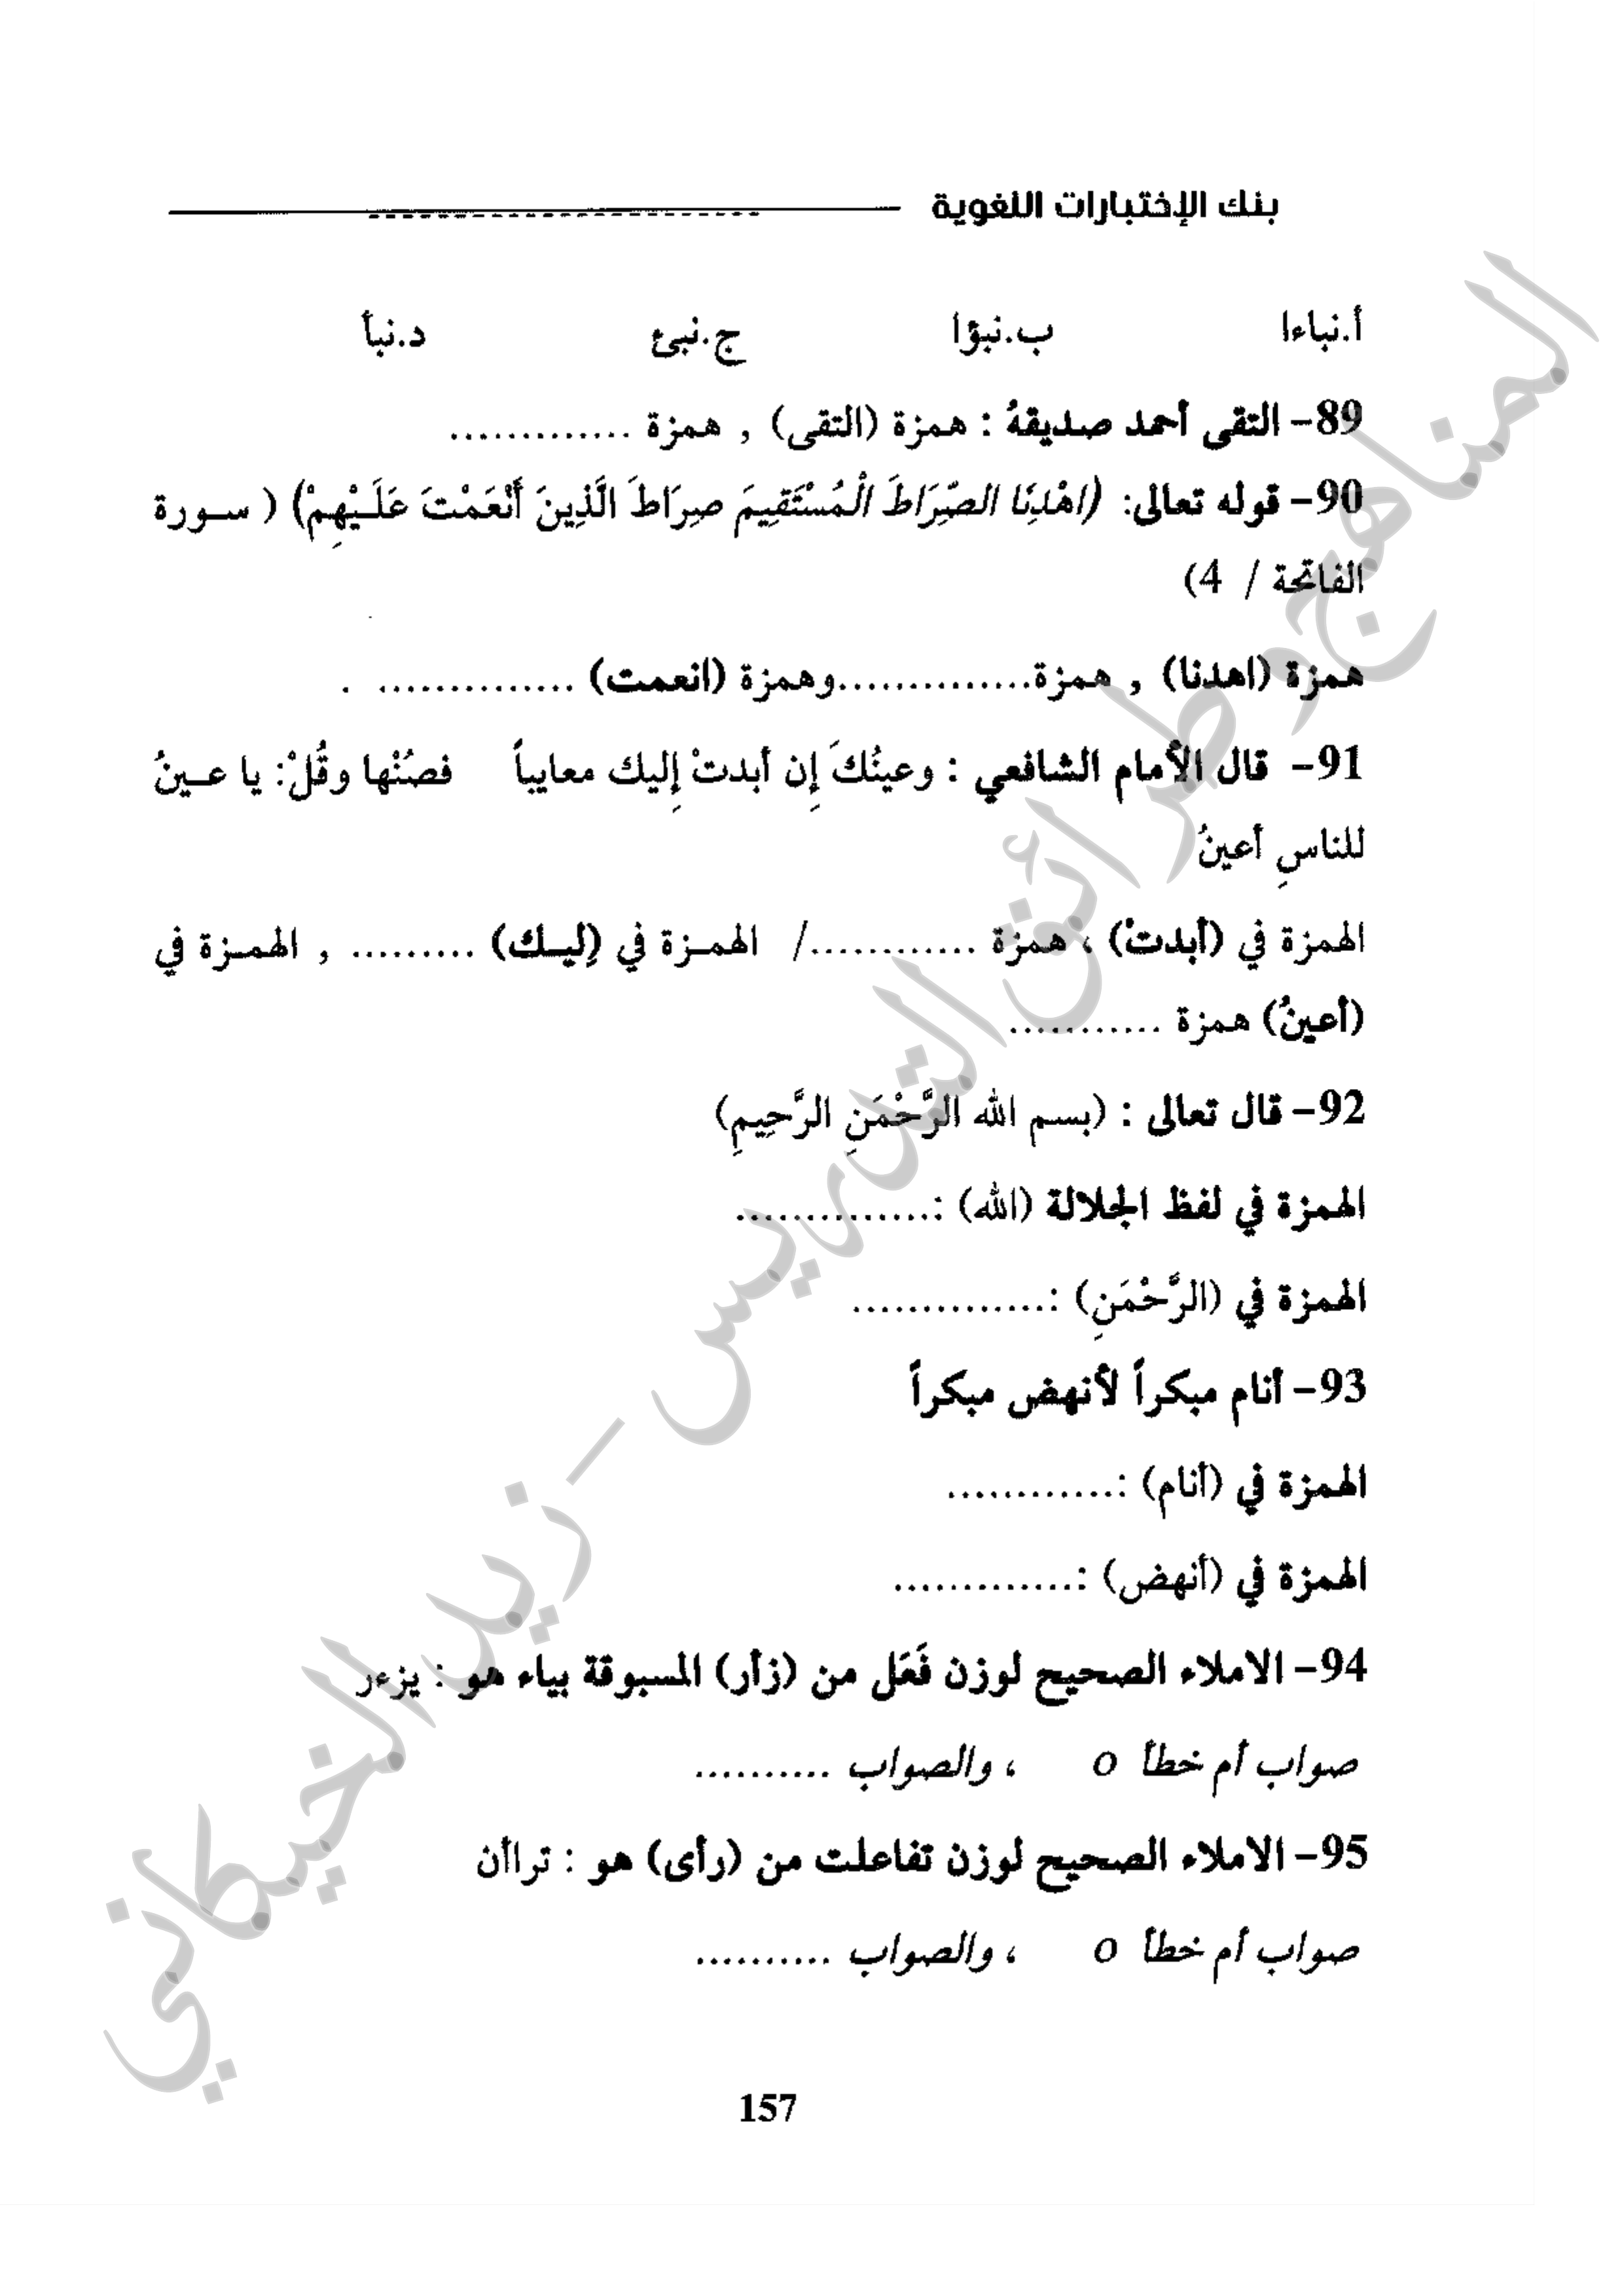 بنك الإختبارات اللغوية
أ.نباءا ب.نبؤا ج.نبئ د.نبأ
89- التقى أحمد صديقهُ : همزة (التقى) , همزة .............
90- قوله تعالى: (اهْدِنَا الصِّرَاطَ الْمُسْتَقِيمَ صِرَاطَ الَّذِينَ أَنْعَمْتَ عَلَـيْهِمْ) ( سـورة
الفاتحة / 4)
همزة (اهدنا) , همزة..............وهمزة (انعمت) .............. .
91- قال الأمام الشافعي : وعينُكَ إِن أبدتْ إِليك معايباً فصُنْها وقُلْ: يا عـينُ
للناسِ أعينُ
الهمزة في (أبدتْ) ، همزة ............/ الهمـزة في (إِليـك) ......... , الهمـزة في
(أعينُ) همزة ...........
92- قال تعالى : (بسم الله الرَّحْمَنِ الرَّحِيمِ)
الهمزة في لفظ الجلالة (الله) :..............
الهمزة في (الرَّحْمَنِ) :..............
93- أنام مبكراً لأنهض مبكراً
الهمزة في (أنام) :............
الهمزة في (أنهض) :.............
94- الاملاء الصحيح لوزن فَعَل من (زأر) المسبوقة بياء هو : يزءر
صواب أم خطأ o ، والصواب ..........
95- الاملاء الصحيح لوزن تفاعلت من (رأى) هو : تراأن
صواب أم خطأ o ، والصواب ..........
157
المناهج وطرائق التدريس - زيد الخيكاني